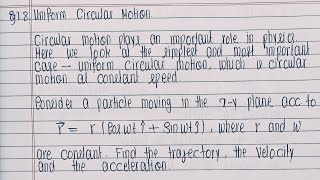 1.8 Uniform Circular Motion
Circular motion plays an important role in physics.
Here we look at the simplest and most important
case -- uniform circular motion, which is circular
motion at constant speed.
Consider a particle moving in the x-y plane acc to
r⃗ = r (Cos wt î + Sin wt ĵ), where r and w
are constant. Find the trajectory, the velocity
and the acceleration.